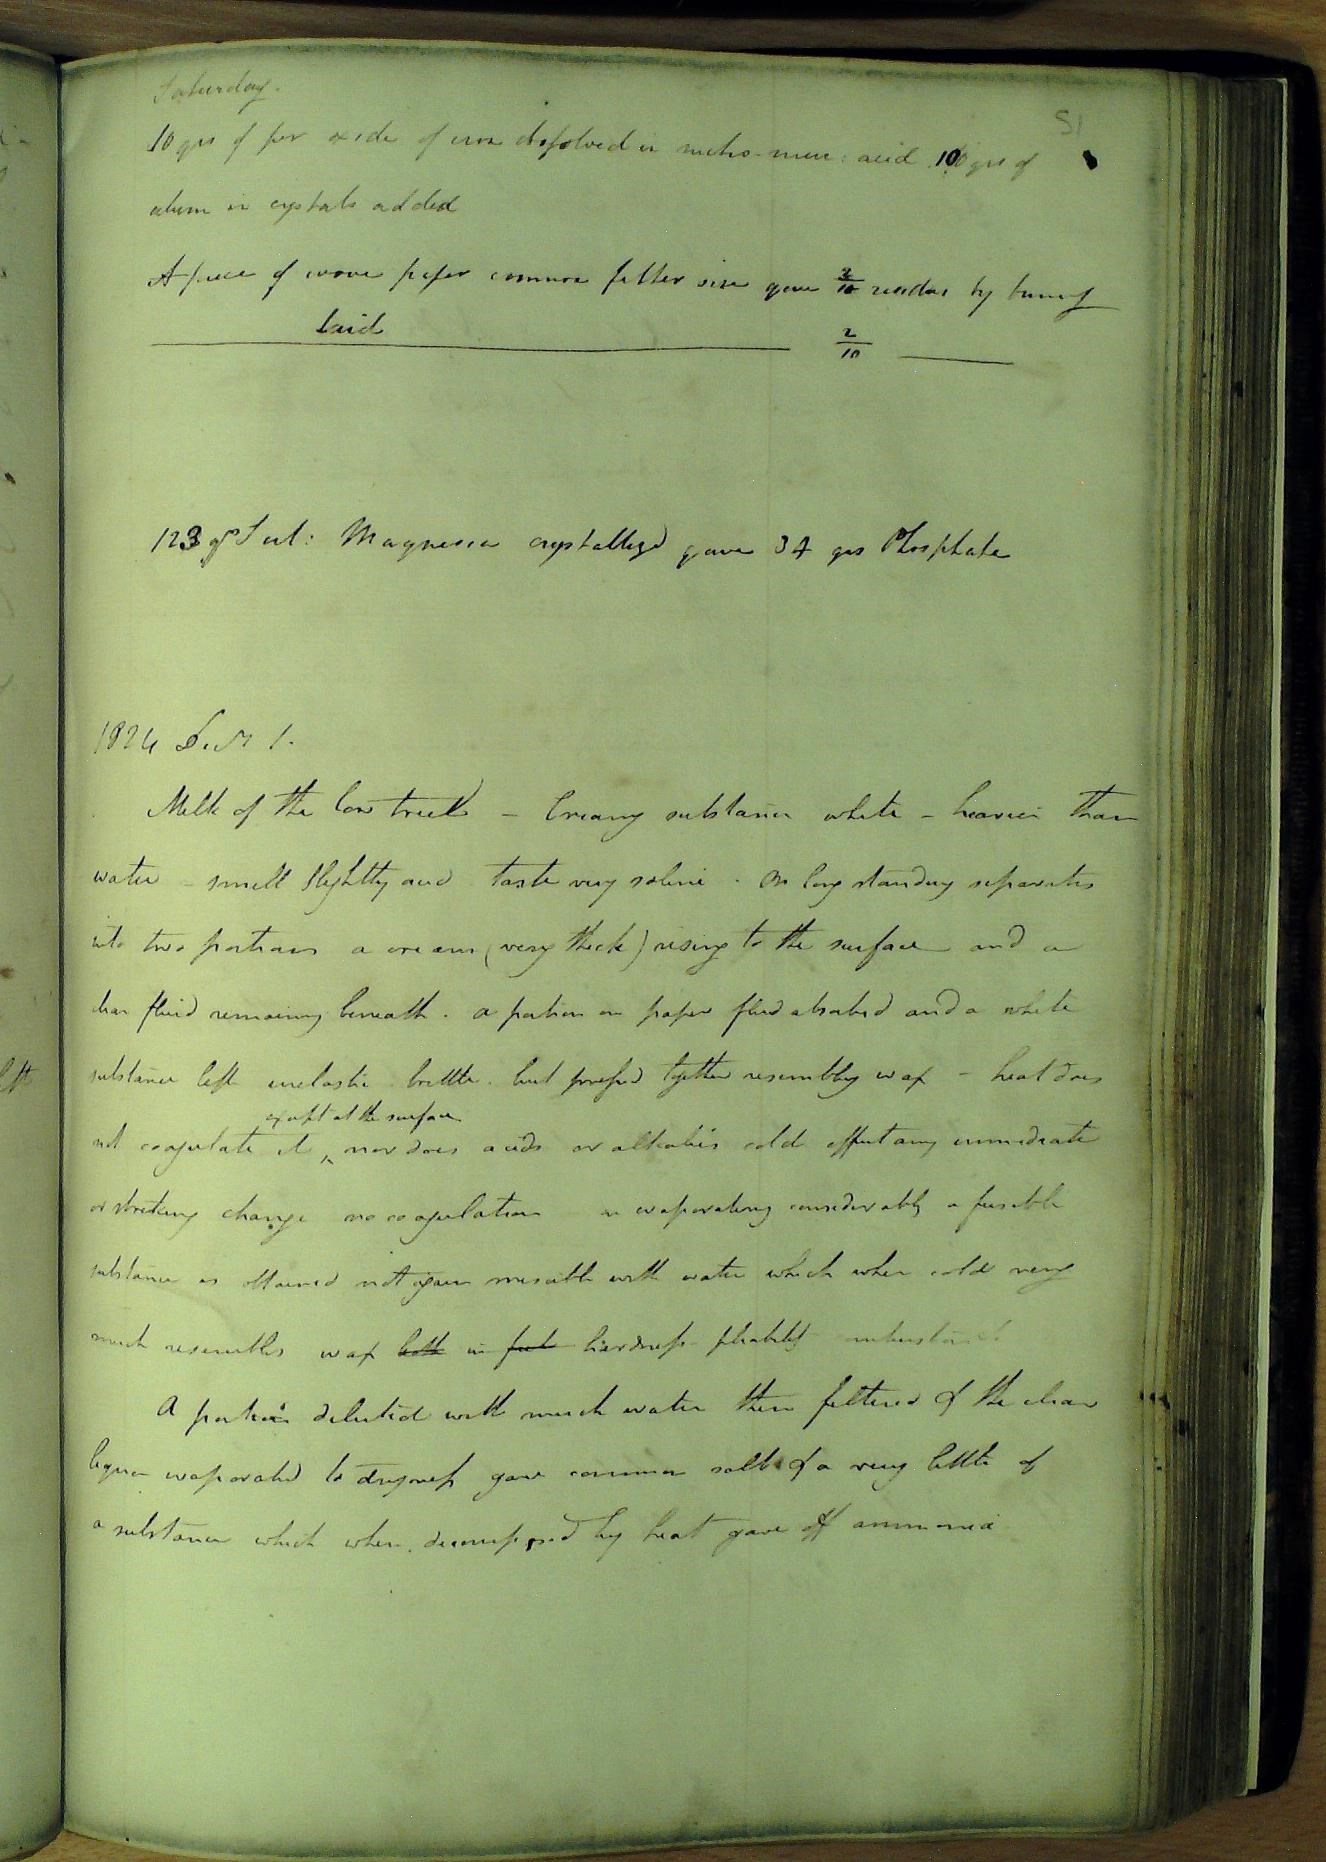 Saturday.
51
10 grs of per oxide of iron dissolved in nitro-mur: acid 100 grs of
alum in crystals added
A piece of wove paper common filter size gave 3/10 residue by burng
laid 2/10
123 gr Sul: Magnesia crystallized gave 34 grs Phosphate
1824 Decr 1.
Milk of the Cow tree - Creamy substance white - heavier than
water - smell slightly acid taste very saline. On long standing separates
into two portions a cream (very thick) rising to the surface and a
clear fluid remaining beneath. a portion on paper fluid absorbed and a white
substance left inelastic brittle. but pressed together resembling wax - heat does
except at the surface
not coagulate it ‸ nor does acids or alkalies cold effect any immediate
or striking change no coagulation on evaporating considerably a fusible
substance is obtained not again miscible with water which when cold very
much resembles wax both in feel hardness pliability
A portion diluted with much water then filtered of the clear
liquor evaporated to dryness gave common salt & a very little of
a substance which when decomposed by heat gave off ammonia